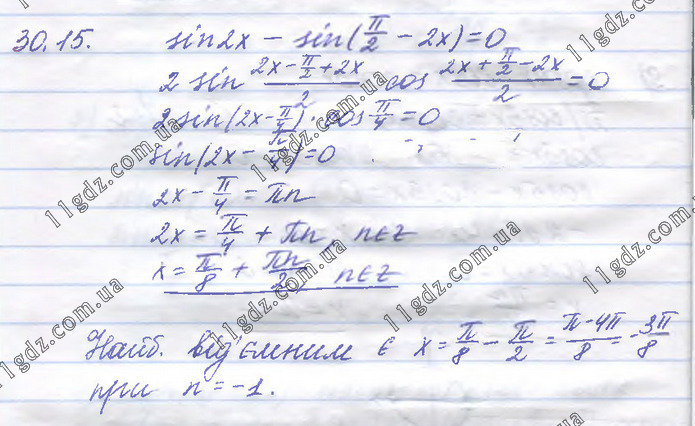 30.15. sin2x - sin(π/2 - 2x)=0
2 sin (2x - π/2 + 2x)/2 cos (2x + π/2 - 2x)/2 = 0
2sin(2x - π/4) · cos π/4 = 0
sin(2x - π/4)=0
2x - π/4 = πn
2x = π/4 + πn, n∈z
x = π/8 + πn/2, n∈z
Найб. від'ємним є x = π/8 - π/2 = (π-4π)/8 = -3π/8
при n = -1.
11gdz.com.ua
11gdz.com.ua
11gdz.com.ua
11gdz.com.ua
11gdz.com.ua
11gdz.com.ua
11gdz.com.ua